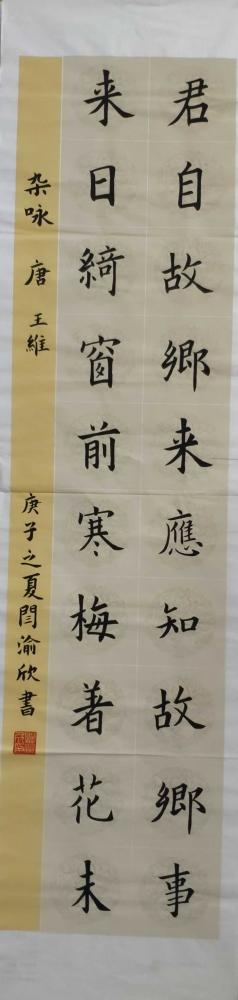 君自故鄉来應知故鄉事
来日綺窗前寒梅着花未
杂咏 唐 王維
庚子之夏閆渝欣書